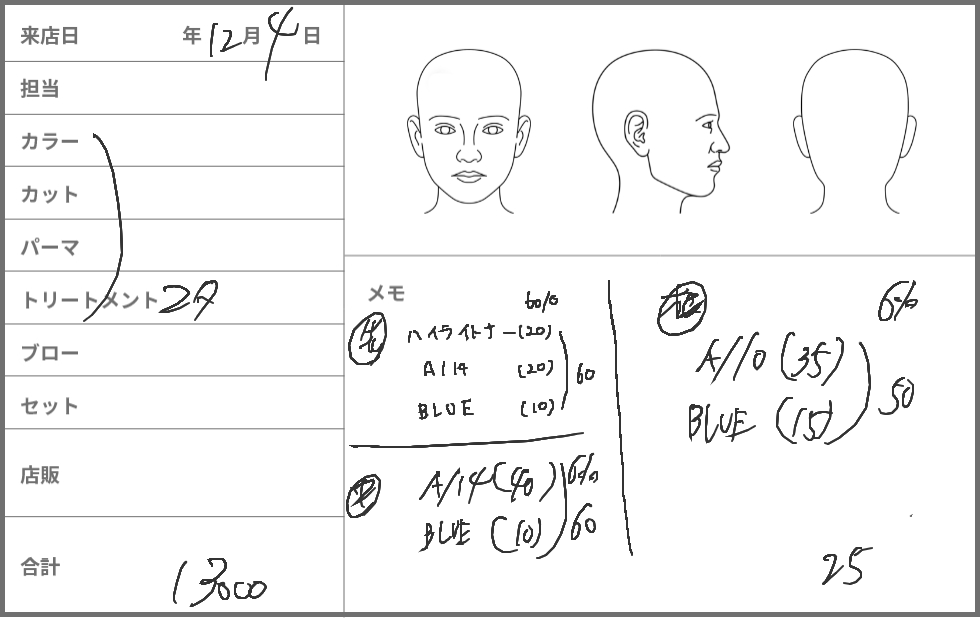 来店日 年12月4日
担当
カラー
カット
パーマ
トリートメント
ブロー
セット
店販
合計 13000
メモ
6%
ハイライトナー(20)
A/14 (20) 60
BLUE (10)
A/14(40) 6%
BLUE (10) 60
6%
A/10 (35)
BLUE (15) 50
25